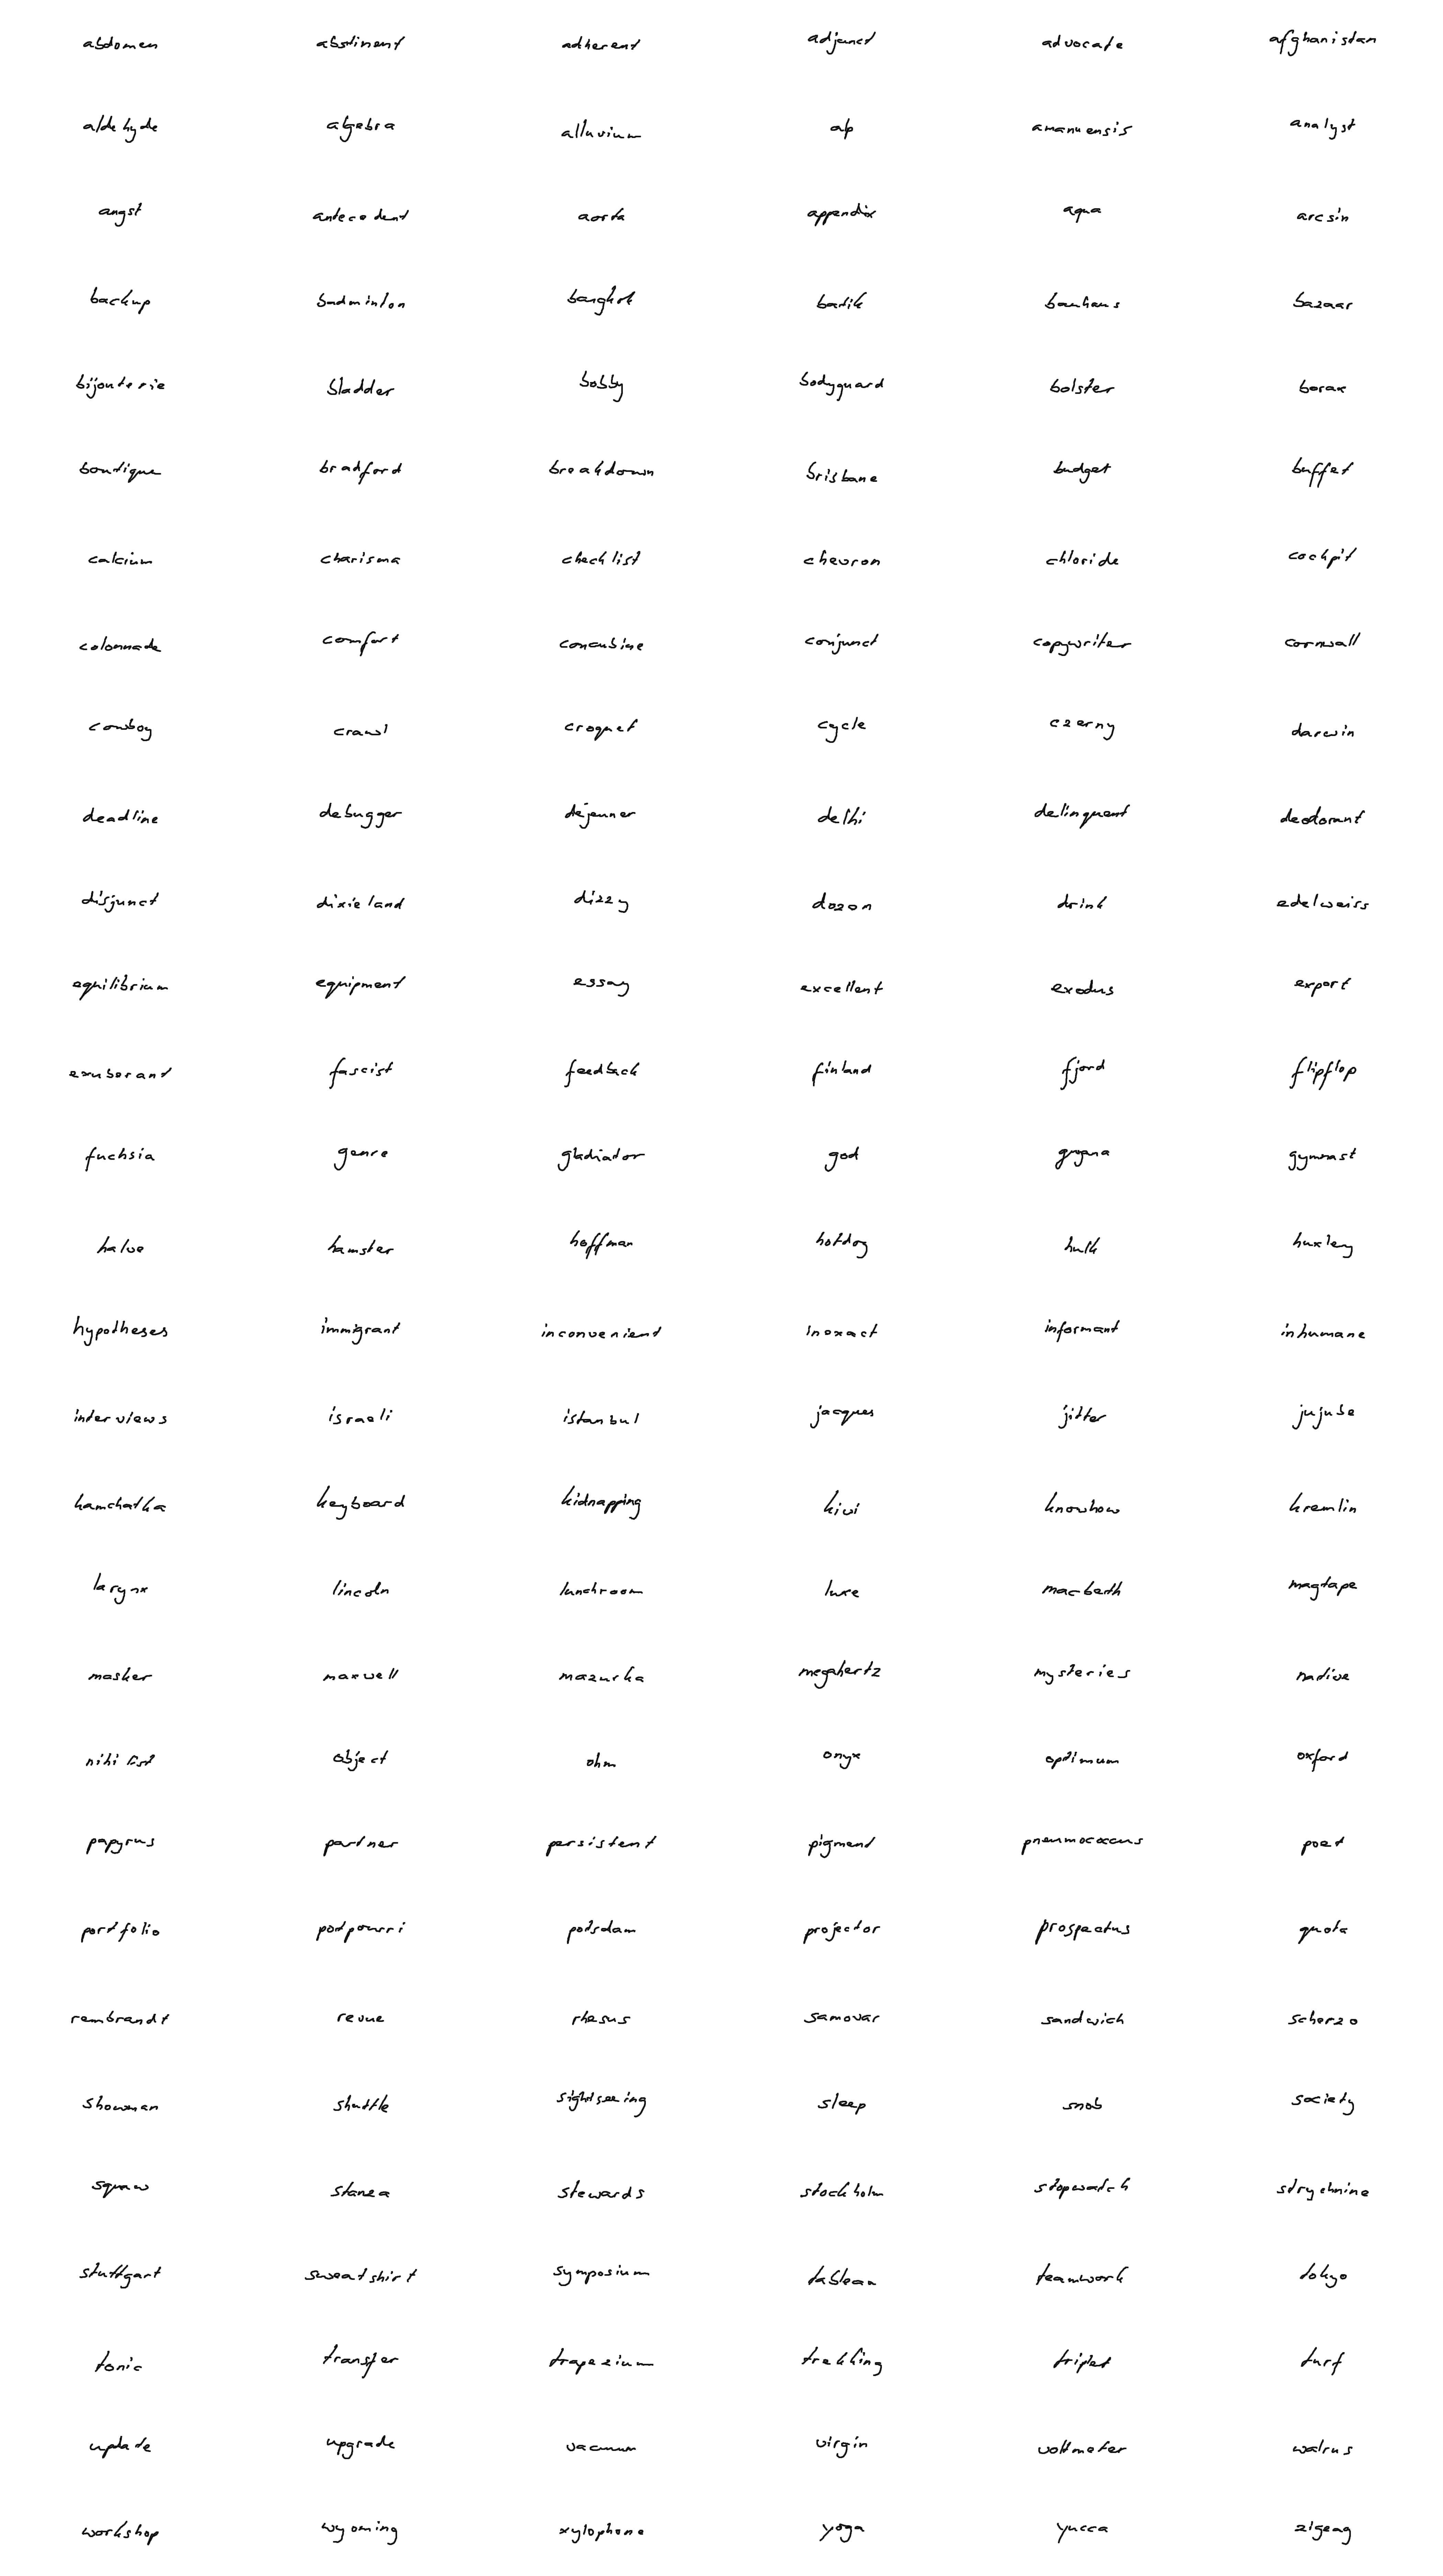 abdomen abstinent adherent adjunct advocate afghanistan
aldehyde algebra alluvium alp amanuensis analyst
angst antecedent aorta appendix aqua arcsin
backup badminton bangkok batik bauhaus bazaar
bijouterie bladder bobby bodyguard bolster borax
boutique bradford breakdown brisbane budget buffet
calcium charisma checklist chevron chloride cockpit
colonnade comfort concubine conjunct copywriter cornwall
cowboy crawl croquet cycle czerny darwin
deadline debugger dejeuner delhi delinquent deodorant
disjunct dixieland dizzy dozen drink edelweiss
equilibrium equipment essay excellent exodus export
exuberant fascist feedback finland fjord flipflop
fuchsia genre gladiator god gregna gymnast
halve hamster hoffman hotdog hulk huxley
hypotheses immigrant inconvenient inexact informant inhumane
interviews israeli istanbul jacques jitter jujube
kamchatka keyboard kidnapping kiwi knowhow kremlin
larynx lincoln lunchroom luxe macbeth magtape
masker maxwell mazurka megahertz mysteries native
nihilist object ohm onyx optimum oxford
papyrus partner persistent pigment pneumococcus poet
portfolio potpourri potsdam projector prospectus quota
rembrandt revue rhesus samovar sandwich scherzo
showman shuttle sightseeing sleep snob society
squaw stanza stewards stockholm stopwatch strychnine
stuttgart sweatshirt symposium tableau teamwork tokyo
tonic transfer trapezium trekking triplet turf
update upgrade vacuum virgin voltmeter walrus
workshop wyoming xylophone yoga yucca zigzag